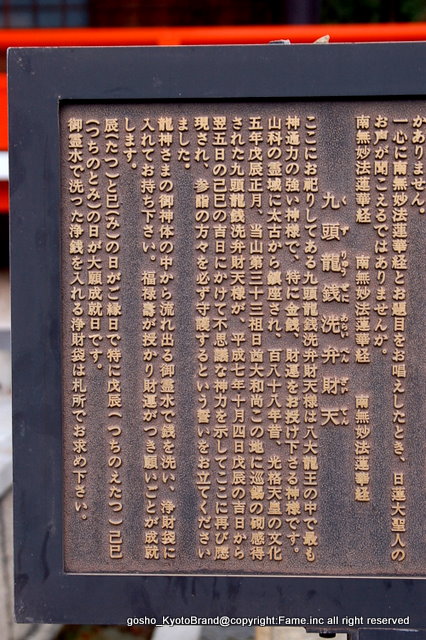 かありません。
一心に南無妙法蓮華経とお題目をお唱えしたとき、日蓮大聖人の
お声が聞こえるではありませんか。
南無妙法蓮華経　南無妙法蓮華経　南無妙法蓮華経
九頭龍銭洗弁財天
くずりゅうぜにあらいべんざいてん
ここにお祀りしてある九頭龍銭洗弁財天様は八大龍王の中で最も
神通力の強い神様で、特に金銭、財運をお授け下さる神様です。
山科の霊域に太古から鎮座され、百八十八年昔、光格天皇の文化
五年戊辰正月、当山第三十三祖日猷大和尚この地に巡錫の砌感得
された九頭龍銭洗弁財天様が、平成七年十月四日戊辰の吉日から
翌五日の己巳の吉日にかけて不思議な神力を示してここに再び応
現され、参詣の方々を必ず守護するという誓いをお立てください
ました。
龍神さまの御神体の中から流れ出る御霊水で銭を洗い、浄財袋に
入れてお持ち下さい。福禄壽が授かり財運がつき願いごとが成就
します。
辰(たつ)と巳(み)の日がご縁日で特に戊辰(つちのえたつ)己巳
(つちのとみ)の日が大願成就日です。
御霊水で洗った浄銭を入れる浄財袋は札所でお求め下さい。
gosho_KyotoBrand@copyright:Fame.inc all right reserved